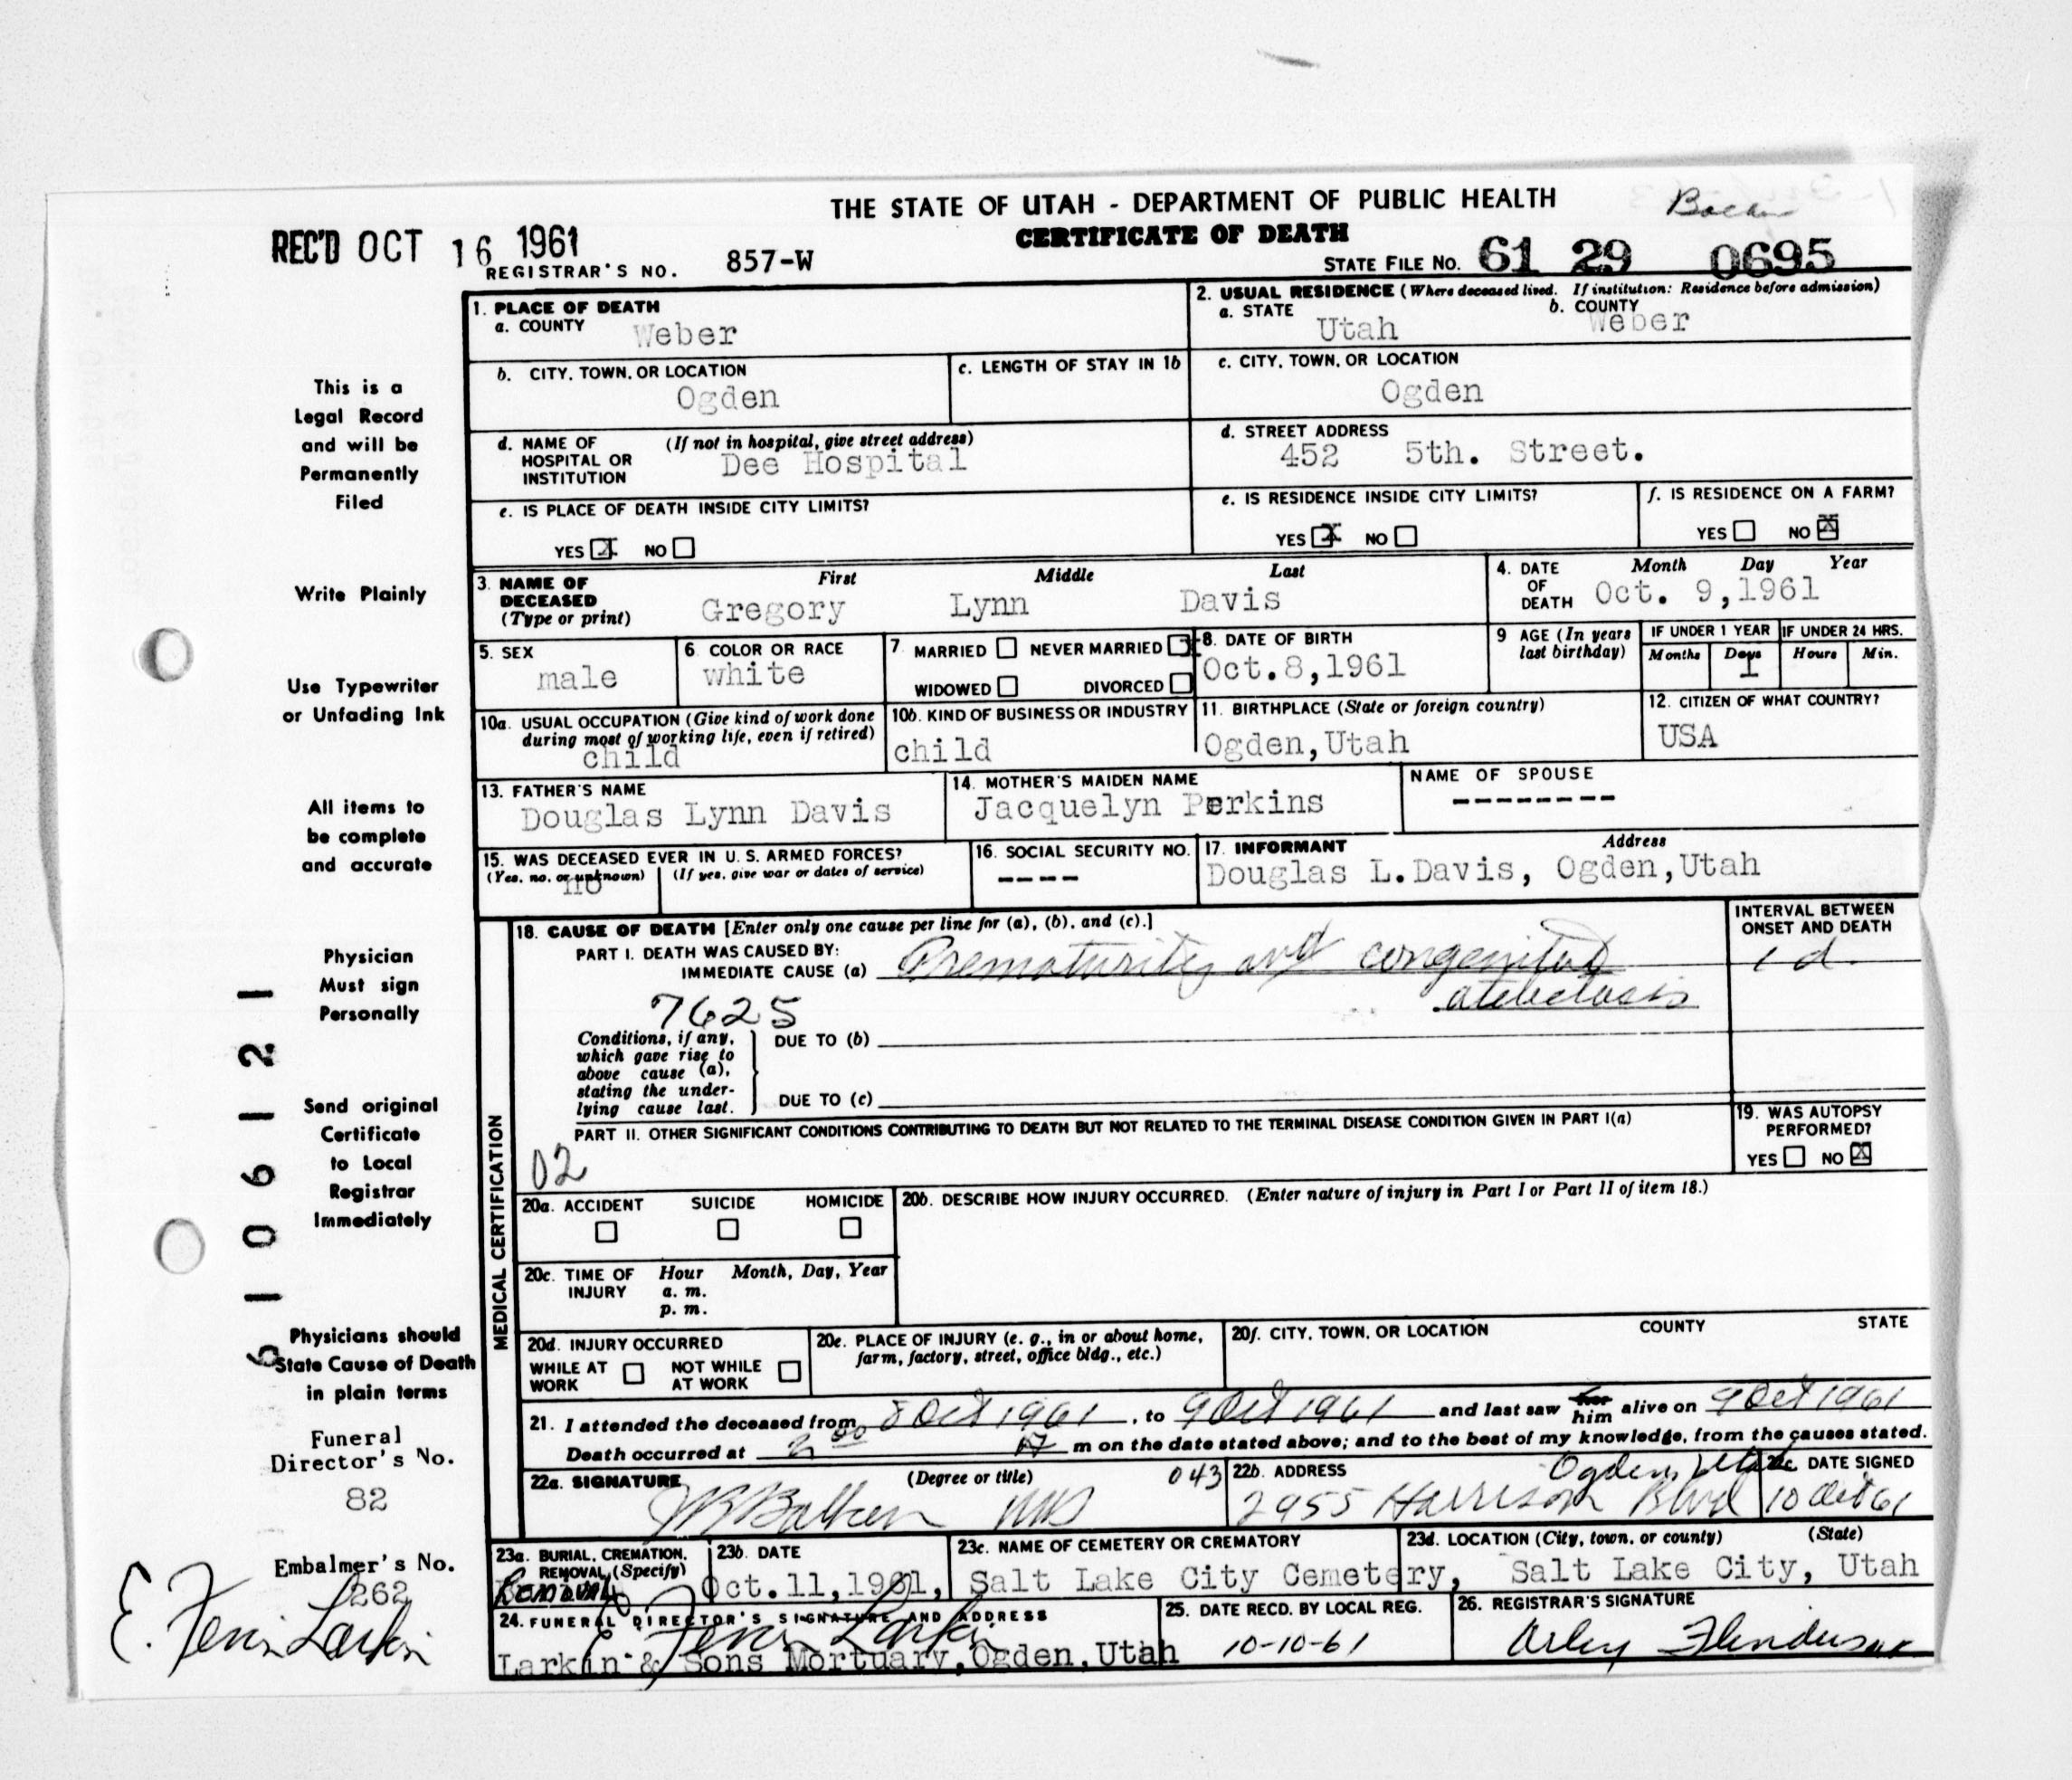 THE STATE OF UTAH - DEPARTMENT OF PUBLIC HEALTH
CERTIFICATE OF DEATH
REC'D OCT 16 1961
REGISTRAR'S NO. 857-W
STATE FILE NO. 61 29 0695
This is a
Legal Record
and will be
Permanently
Filed
Write Plainly
Use Typewriter
or Unfading Ink
All items to
be complete
and accurate
Physician
Must sign
Personally
Send original
Certificate
to Local
Registrar
Immediately
Physicians should
State Cause of Death
in plain terms
Funeral
Director's No.
82
Embalmer's No.
262
E. Ferrin Larkin
1. PLACE OF DEATH
a. COUNTY Weber
2. USUAL RESIDENCE (Where deceased lived. If institution: Residence before admission)
a. STATE Utah b. COUNTY Weber
b. CITY, TOWN, OR LOCATION Ogden
c. LENGTH OF STAY IN 1b
c. CITY, TOWN, OR LOCATION Ogden
d. NAME OF HOSPITAL OR INSTITUTION (If not in hospital, give street address) Dee Hospital
d. STREET ADDRESS 452 5th. Street.
e. IS PLACE OF DEATH INSIDE CITY LIMITS?
YES X NO
e. IS RESIDENCE INSIDE CITY LIMITS?
YES X NO
f. IS RESIDENCE ON A FARM?
YES NO X
3. NAME OF DECEASED (Type or print) First Middle Last
Gregory Lynn Davis
4. DATE OF DEATH Month Day Year
Oct. 9,1961
5. SEX male
6. COLOR OR RACE white
7. MARRIED NEVER MARRIED X
WIDOWED DIVORCED
8. DATE OF BIRTH Oct.8,1961
9 AGE (In years last birthday)
IF UNDER 1 YEAR Months Days 1
IF UNDER 24 HRS. Hours Min.
10a. USUAL OCCUPATION (Give kind of work done during most of working life, even if retired) child
10b. KIND OF BUSINESS OR INDUSTRY child
11. BIRTHPLACE (State or foreign country) Ogden,Utah
12. CITIZEN OF WHAT COUNTRY? USA
13. FATHER'S NAME Douglas Lynn Davis
14. MOTHER'S MAIDEN NAME Jacquelyn Perkins
NAME OF SPOUSE --------
15. WAS DECEASED EVER IN U. S. ARMED FORCES?
(Yes, no, or unknown) no (If yes, give war or dates of service)
16. SOCIAL SECURITY NO. ----
17. INFORMANT Address
Douglas L.Davis, Ogden,Utah
MEDICAL CERTIFICATION
18. CAUSE OF DEATH [Enter only one cause per line for (a), (b), and (c).]
INTERVAL BETWEEN ONSET AND DEATH
PART I. DEATH WAS CAUSED BY:
IMMEDIATE CAUSE (a) Prematurity and congenital atelectasis 1 d.
7625
Conditions, if any, which gave rise to above cause (a), stating the underlying cause last.
DUE TO (b)
DUE TO (c)
PART II. OTHER SIGNIFICANT CONDITIONS CONTRIBUTING TO DEATH BUT NOT RELATED TO THE TERMINAL DISEASE CONDITION GIVEN IN PART I(a)
02
19. WAS AUTOPSY PERFORMED?
YES NO X
20a. ACCIDENT SUICIDE HOMICIDE
20b. DESCRIBE HOW INJURY OCCURRED. (Enter nature of injury in Part I or Part II of item 18.)
20c. TIME OF INJURY Hour a. m. p. m. Month, Day, Year
20d. INJURY OCCURRED
WHILE AT WORK NOT WHILE AT WORK
20e. PLACE OF INJURY (e. g., in or about home, farm, factory, street, office bldg., etc.)
20f. CITY, TOWN, OR LOCATION COUNTY STATE
21. I attended the deceased from 8 Oct 1961, to 9 Oct 1961 and last saw her him alive on 9 Oct 1961
Death occurred at 2 00 A m on the date stated above; and to the best of my knowledge, from the causes stated.
22a. SIGNATURE (Degree or title) 043
MD
22b. ADDRESS Ogden, Utah
2955 Harrison Blvd
22c. DATE SIGNED
10 Oct 61
23a. BURIAL, CREMATION, REMOVAL, (Specify) Removal
23b. DATE Oct.11,1961,
23c. NAME OF CEMETERY OR CREMATORY Salt Lake City Cemetery,
23d. LOCATION (City, town, or county) (State) Salt Lake City, Utah
24. FUNERAL DIRECTOR'S SIGNATURE AND ADDRESS
E. Ferrin Larkin
Larkin & Sons Mortuary,Ogden,Utah
25. DATE RECD. BY LOCAL REG.
10-10-61
26. REGISTRAR'S SIGNATURE